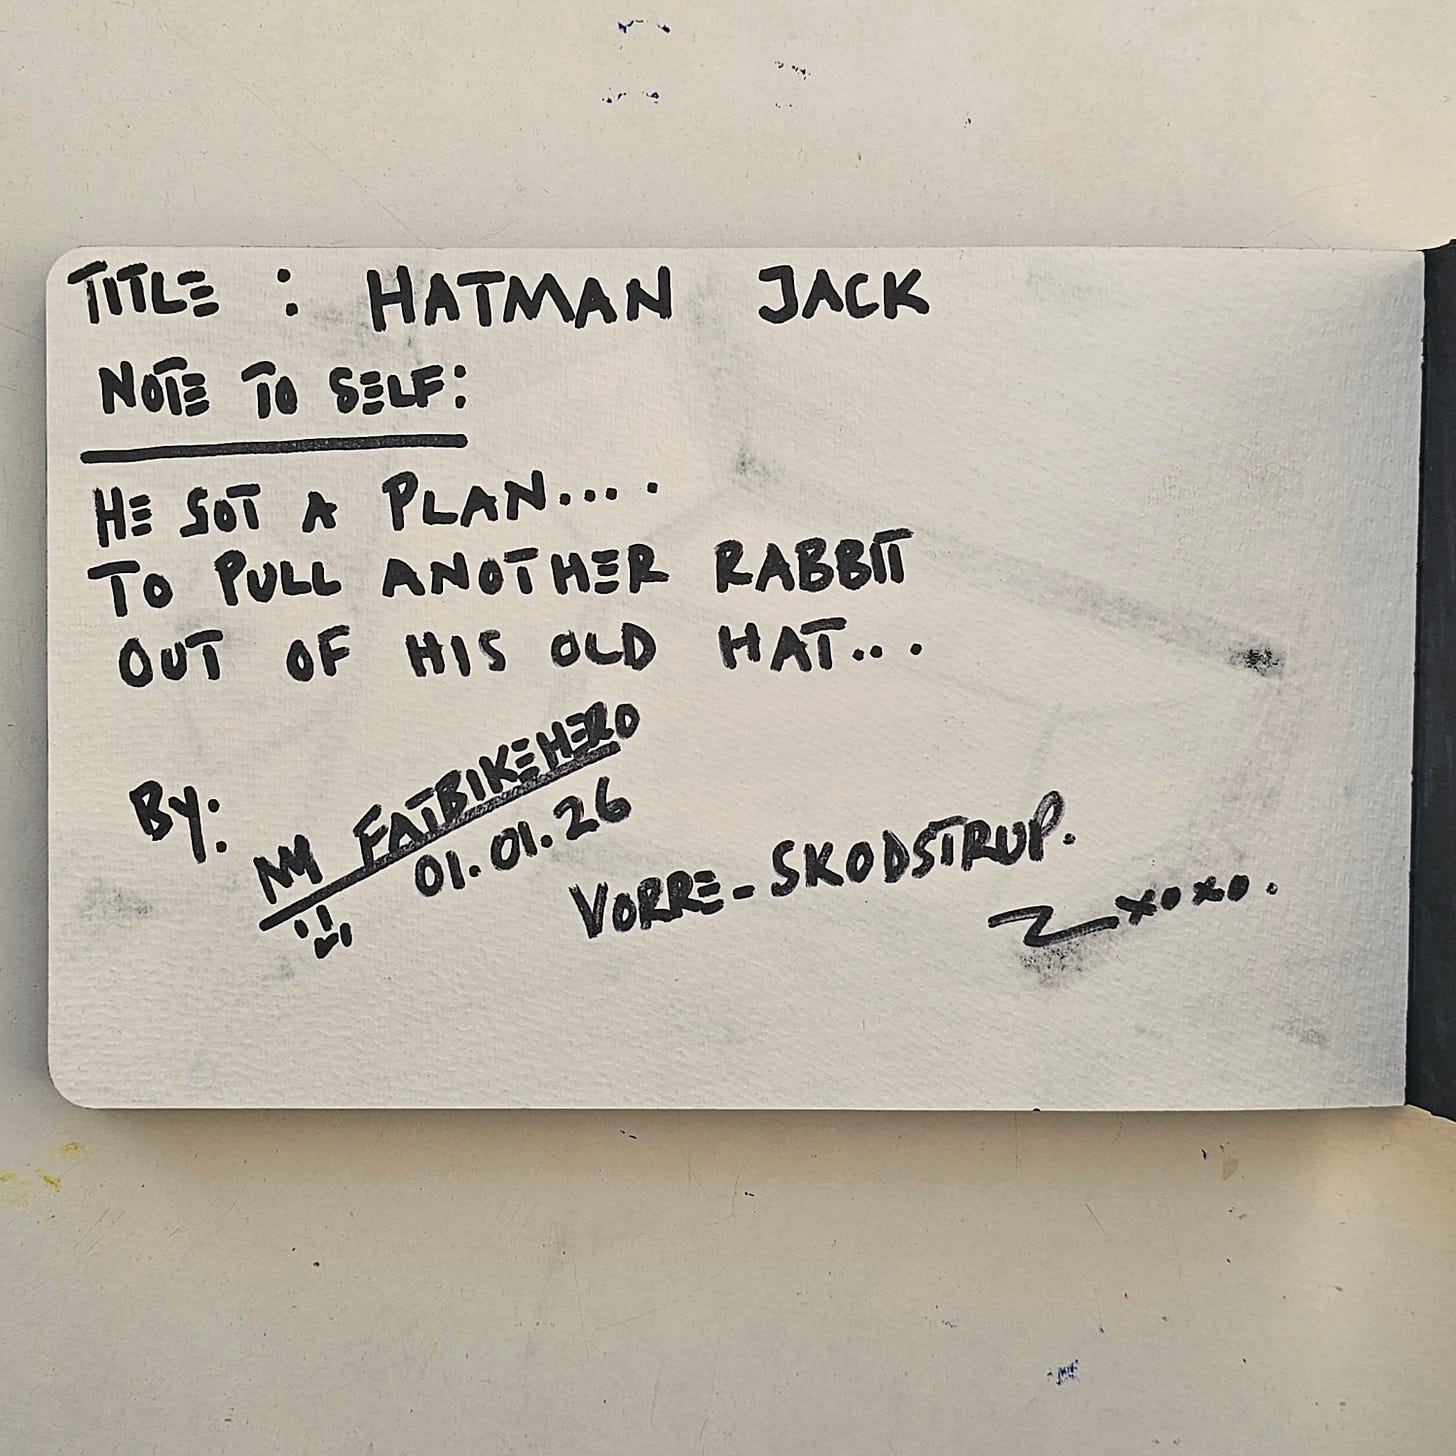 TITLE : HATMAN JACK
NOTE TO SELF:
HE GOT A PLAN....
TO PULL ANOTHER RABBIT
OUT OF HIS OLD HAT...
By:
FATBIKEHERO
01.01.26
VORRE-SKODSTRUP.
xoxo.